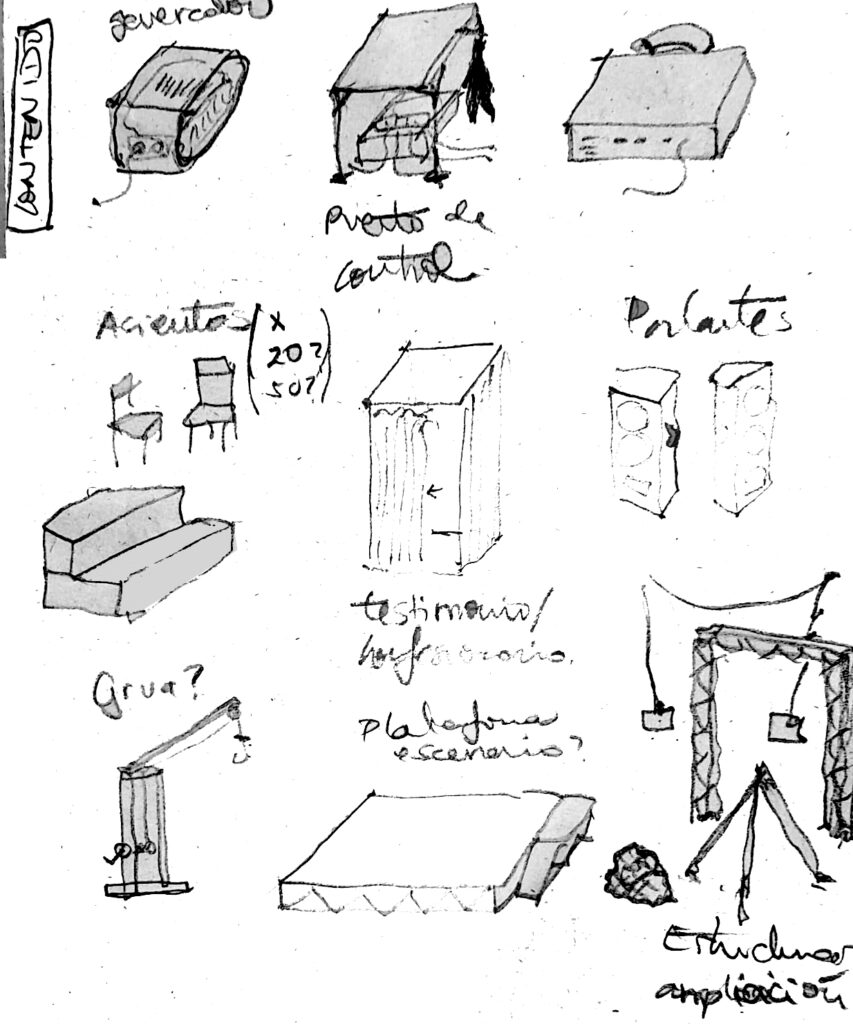 generador
CONTENIDO
Puesto de
control
Acientos (x
20?
50?)
Parlantes
testimonio/
Grua?
Plataforma
escenario?
Estructuras
ampliación